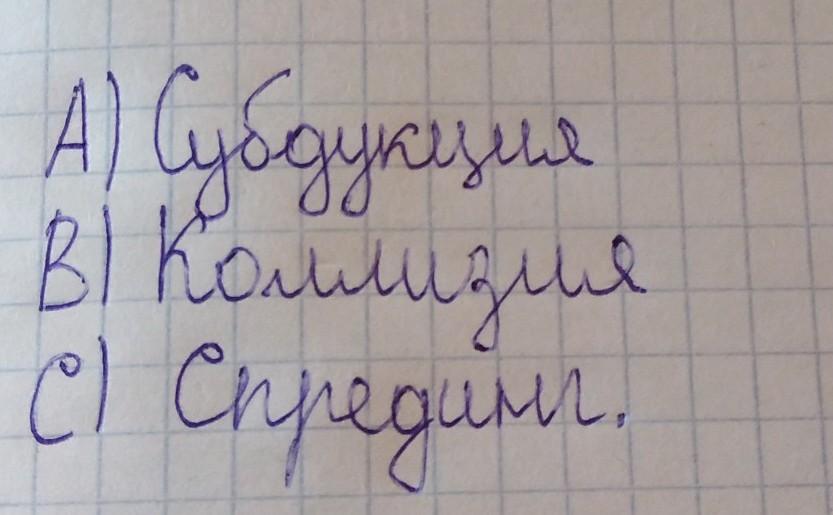 А) Субдукция
В) Коллизия
С) Спрединг.